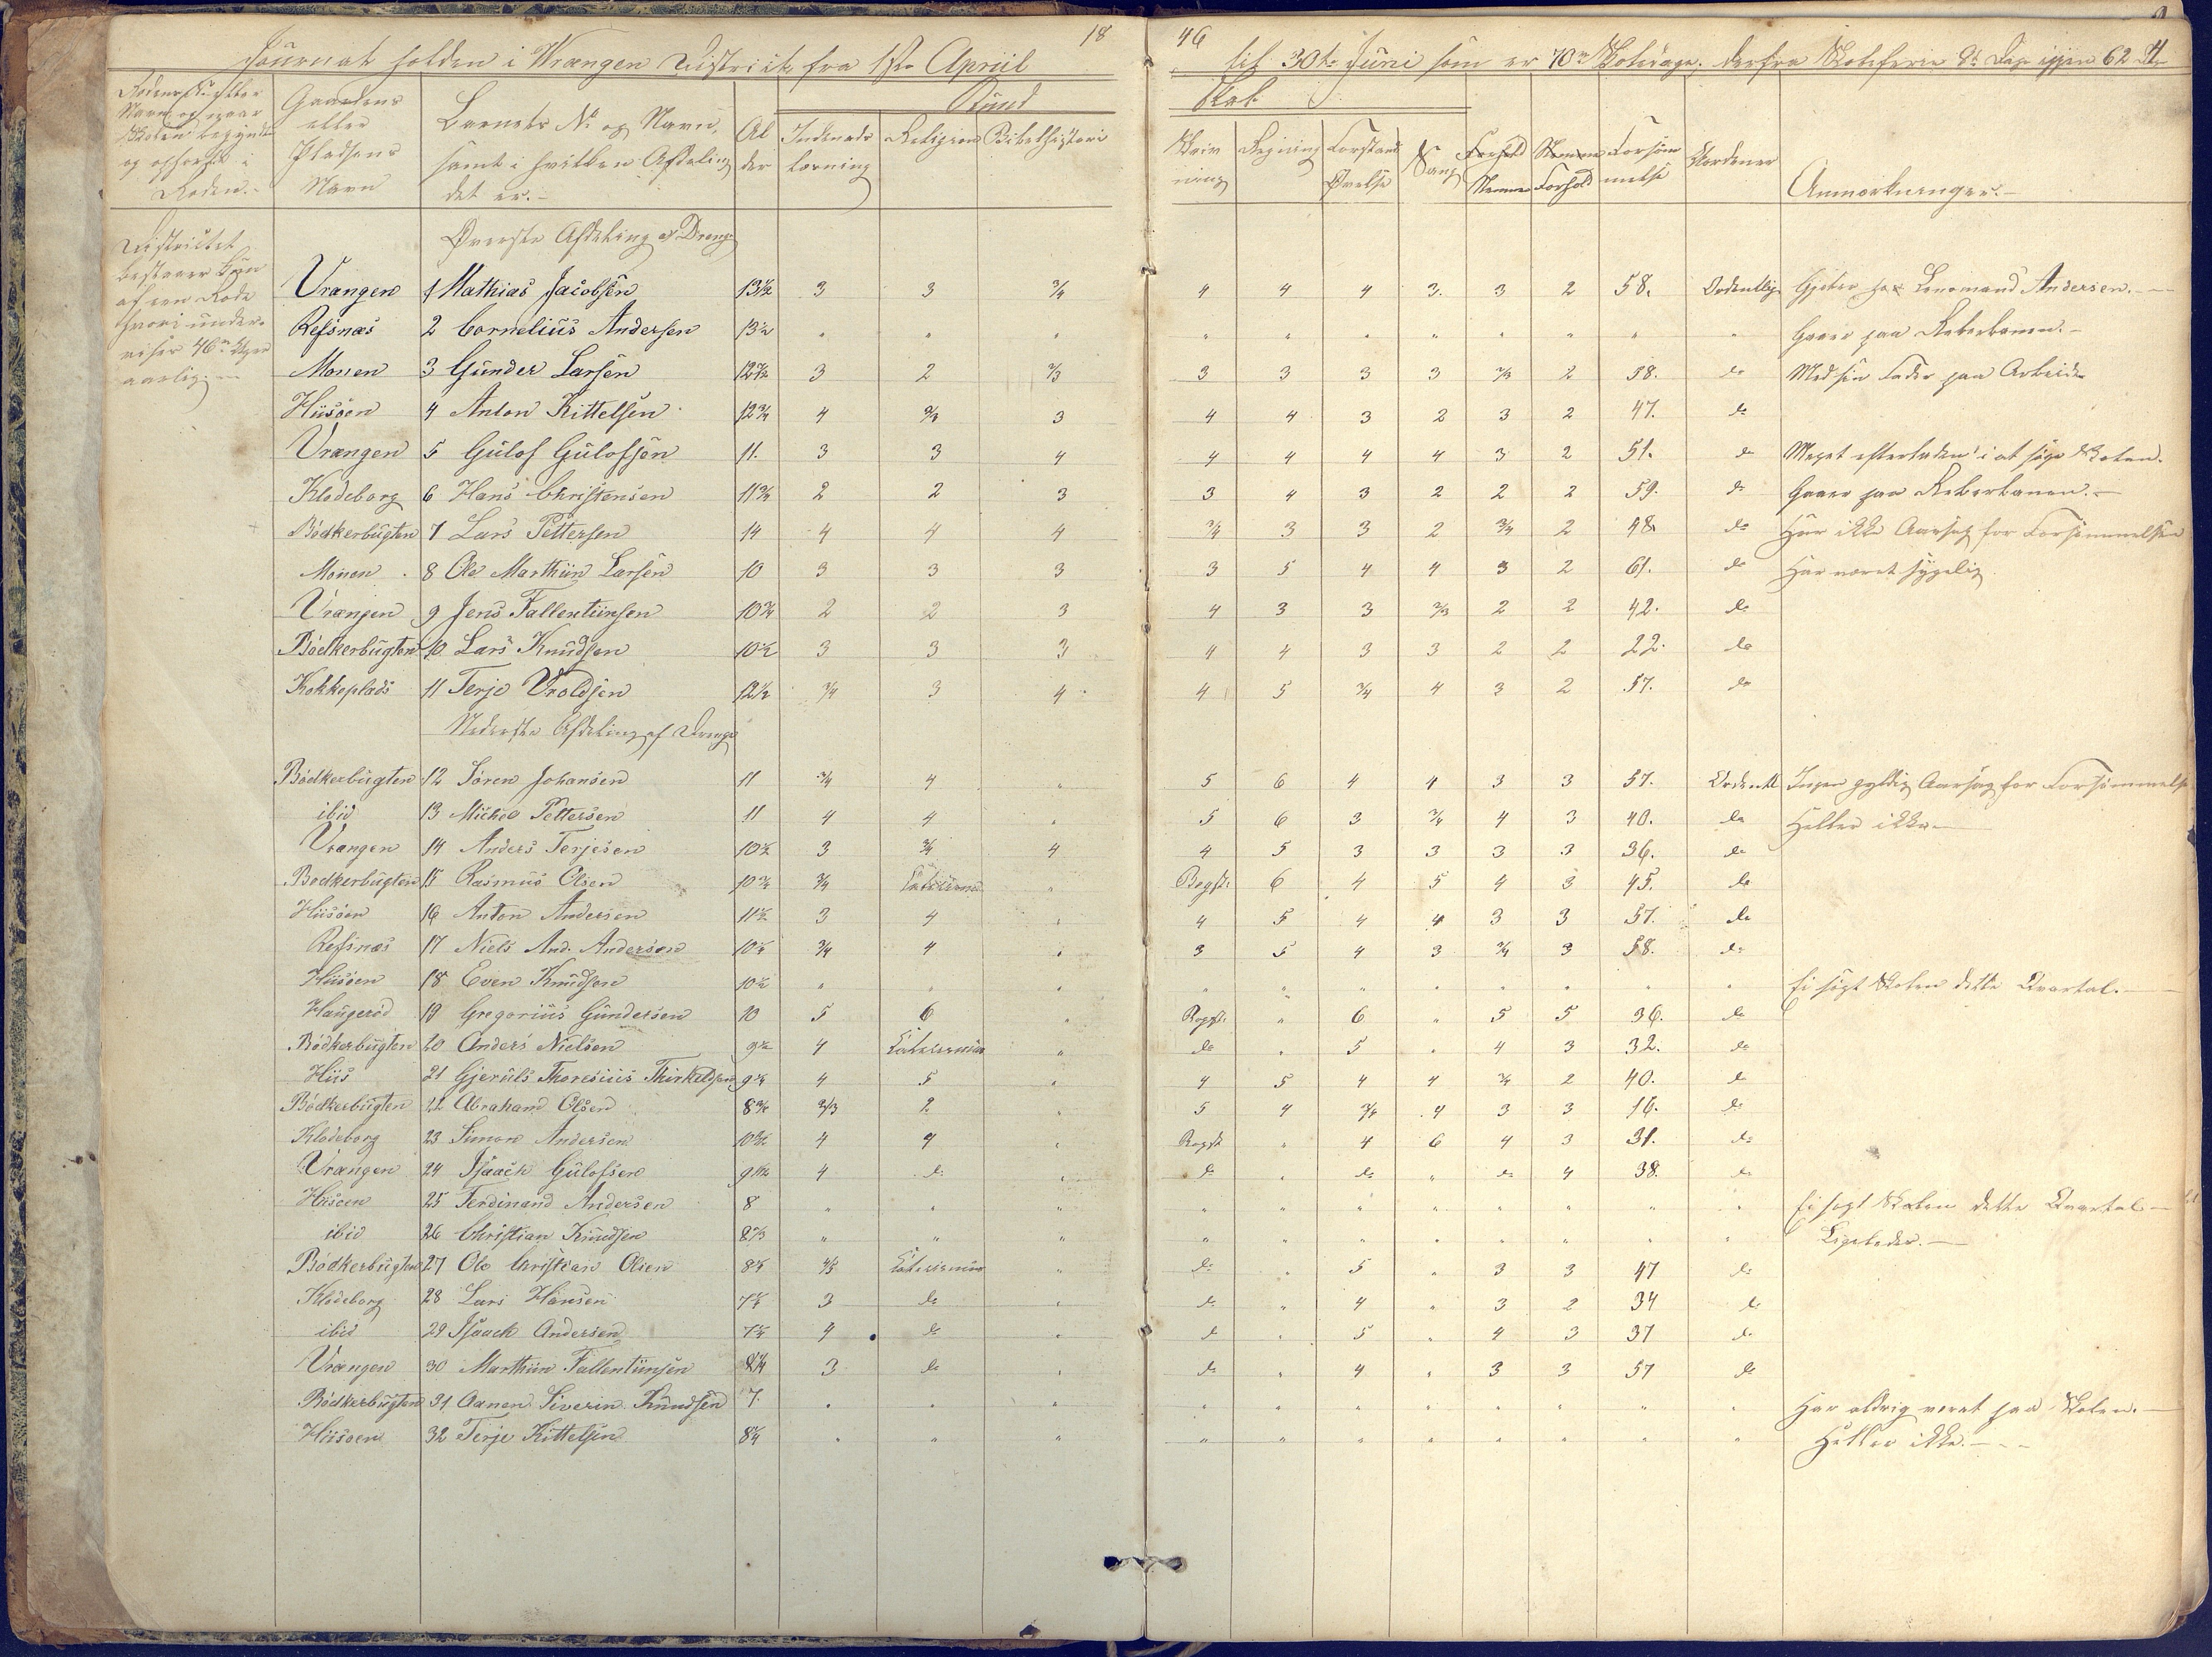 18 46
Journal holden i Wrangen District fra 1ste April til 30te Juni som er 70 Skoledage, derfra Skoleferie 8 Dage igjen 62 D
Gaardens eller Pladsens Navn
Barnets No og Navn, samt i hvilken Afdeling det er.
Alder
Kundskab
Indenadslæsning
Religion
Bibelhistorie
Skrivning
Regning
Forstands Øvelse
Sang
Nemme
Forhold
Forsømmelse
Anmærkninger.
Districtet bestaaer kun af een Rode hvori undervises Uger aarlig.
Øverste Afdeling af Drenge
Vrangen 1 Mathias Jacobsen 13½ 3 3 3/4 4 4 4 3. 3 2 58. Ordentlig Gjeter hos Lensmand Andersen.
Refsnæs 2 Cornelius Andersen 13½ " " " " " " " " " " " Gaaer paa Reberbanen.
Monen 3 Gunder Larsen 12 3 2 2/3 3 3 3 3 2/3 2 58. do Med sin Fader paa Arbeide
Hiisöen 4 Anton Kittelsen 12¾ 4 3 4 4 3 2 3 2 47. do
Vrangen 5 Gulof Gulofsen 11. 3 3 4 4 4 4 4 3 2 51. do Meget efterladen i at søge Skolen.
Klodeborg 6 Hans Christensen 11¾ 2 2 3 3 4 3 2 2 2 59. do Gaaer paa Reberbanen.
Bödkerbugten 7 Lars Pettersen 14 4 4 4 3/4 3 3 2 3/4 2 48. do Har ikke Aarsag for Forsømmelsen
Monen 8 Ole Marthiin Larsen 10 3 3 3 3 5 4 4 3 2 61. do Har været sygelig
Vrangen 9 Jens Fallentiinsen 10¾ 2 2 3 4 3 3 2/3 2 2 42. do
Bödkerbugten 10 Lars Knudsen 10½ 3 3 3 4 4 3 3 2 2 22. do
Kokkeplads 11 Terje Vroldsen 12½ 3/4 3 4 4 5 3/4 4 3 2 57. do
Nederste Afdeling af Drenge
Bödkerbugten 12 Sören Johansen 11 3/4 4 " 5 6 4 4 3 3 57. Ordentl Ingen gyldig Aarsag for Forsømmelse
ibid 13 Michel Pettersen 11 4 4 " 5 6 3 3/4 4 3 40. do Heller ikke
Vrangen 14 Anders Terjesen 10½ 3 3/4 4 4 5 3 3 3 3 36. do
Bödkerbugten 15 Rasmus Olsen 10¾ 3/4 " Begst: 6 4 5 4 3 45. do
Hiisöen 16 Anton Andersen 11½ 3 4 " 4 5 4 4 3 3 57. do
Refsnæs 17 Niels And. Andersen 10 3/4 4 " 3 5 4 3 3/4 3 58. do
Hiisöen 18 Even Knudsen 10½ " " " " " " " " " " " Ei søgt Skolen dette Qvartal.
Haugeröd 19 Gregorius Gundersen 10 5 6 " Begst: " 6 " 5 5 36. do
Bödkerbugten 20 Anders Nielsen 9½ 4 " do " 5 " 4 3 32. do
Hiis 21 Gjeruls Thoresius Thirkeldsen 9 4 5 " 4 5 4 4 3/4 2 40. do
Bödkerbugten 22 Abraham Olsen 8¾ 2/3 2 " 5 4 3/4 4 3 3 16. do
Klodeborg 23 Simon Andersen 10 4 4 " Begst " 4 6 4 3 31. do
Vrangen 24 Isaach Gulofsen 9 4 do " do " do " do 4 38. do
Hiisöen 25 Ferdinand Andersen 8 " " " " " " " " " " " Ei søgt Skolen dette Qvartal
ibid 26 Christian Knudsen 8 " " " " " " " " " " " Ligeledes.
Bödkerbugten 27 Ole Christian Olsen 8 " do " 5 " 3 3 47 do
Klodeborg 28 Lars Hansen 7 3 do " do " 4 " 3 2 34 do
ibid 29 Isaack Andersen 7 4 do " do " 5 " 4 3 37 do
Vrangen 30 Marthiin Fallentiinsen 8¼ 3 do " do " 4 " 3 3 57 do
Bödkerbugten 31 Aanen Siverin Knudsen 7. " " " " " " " " " " " Har aldrig været paa Skolen.
Hiisöen 32 Terje Kittelsen 8 " " " " " " " " " " " Heller ikke.